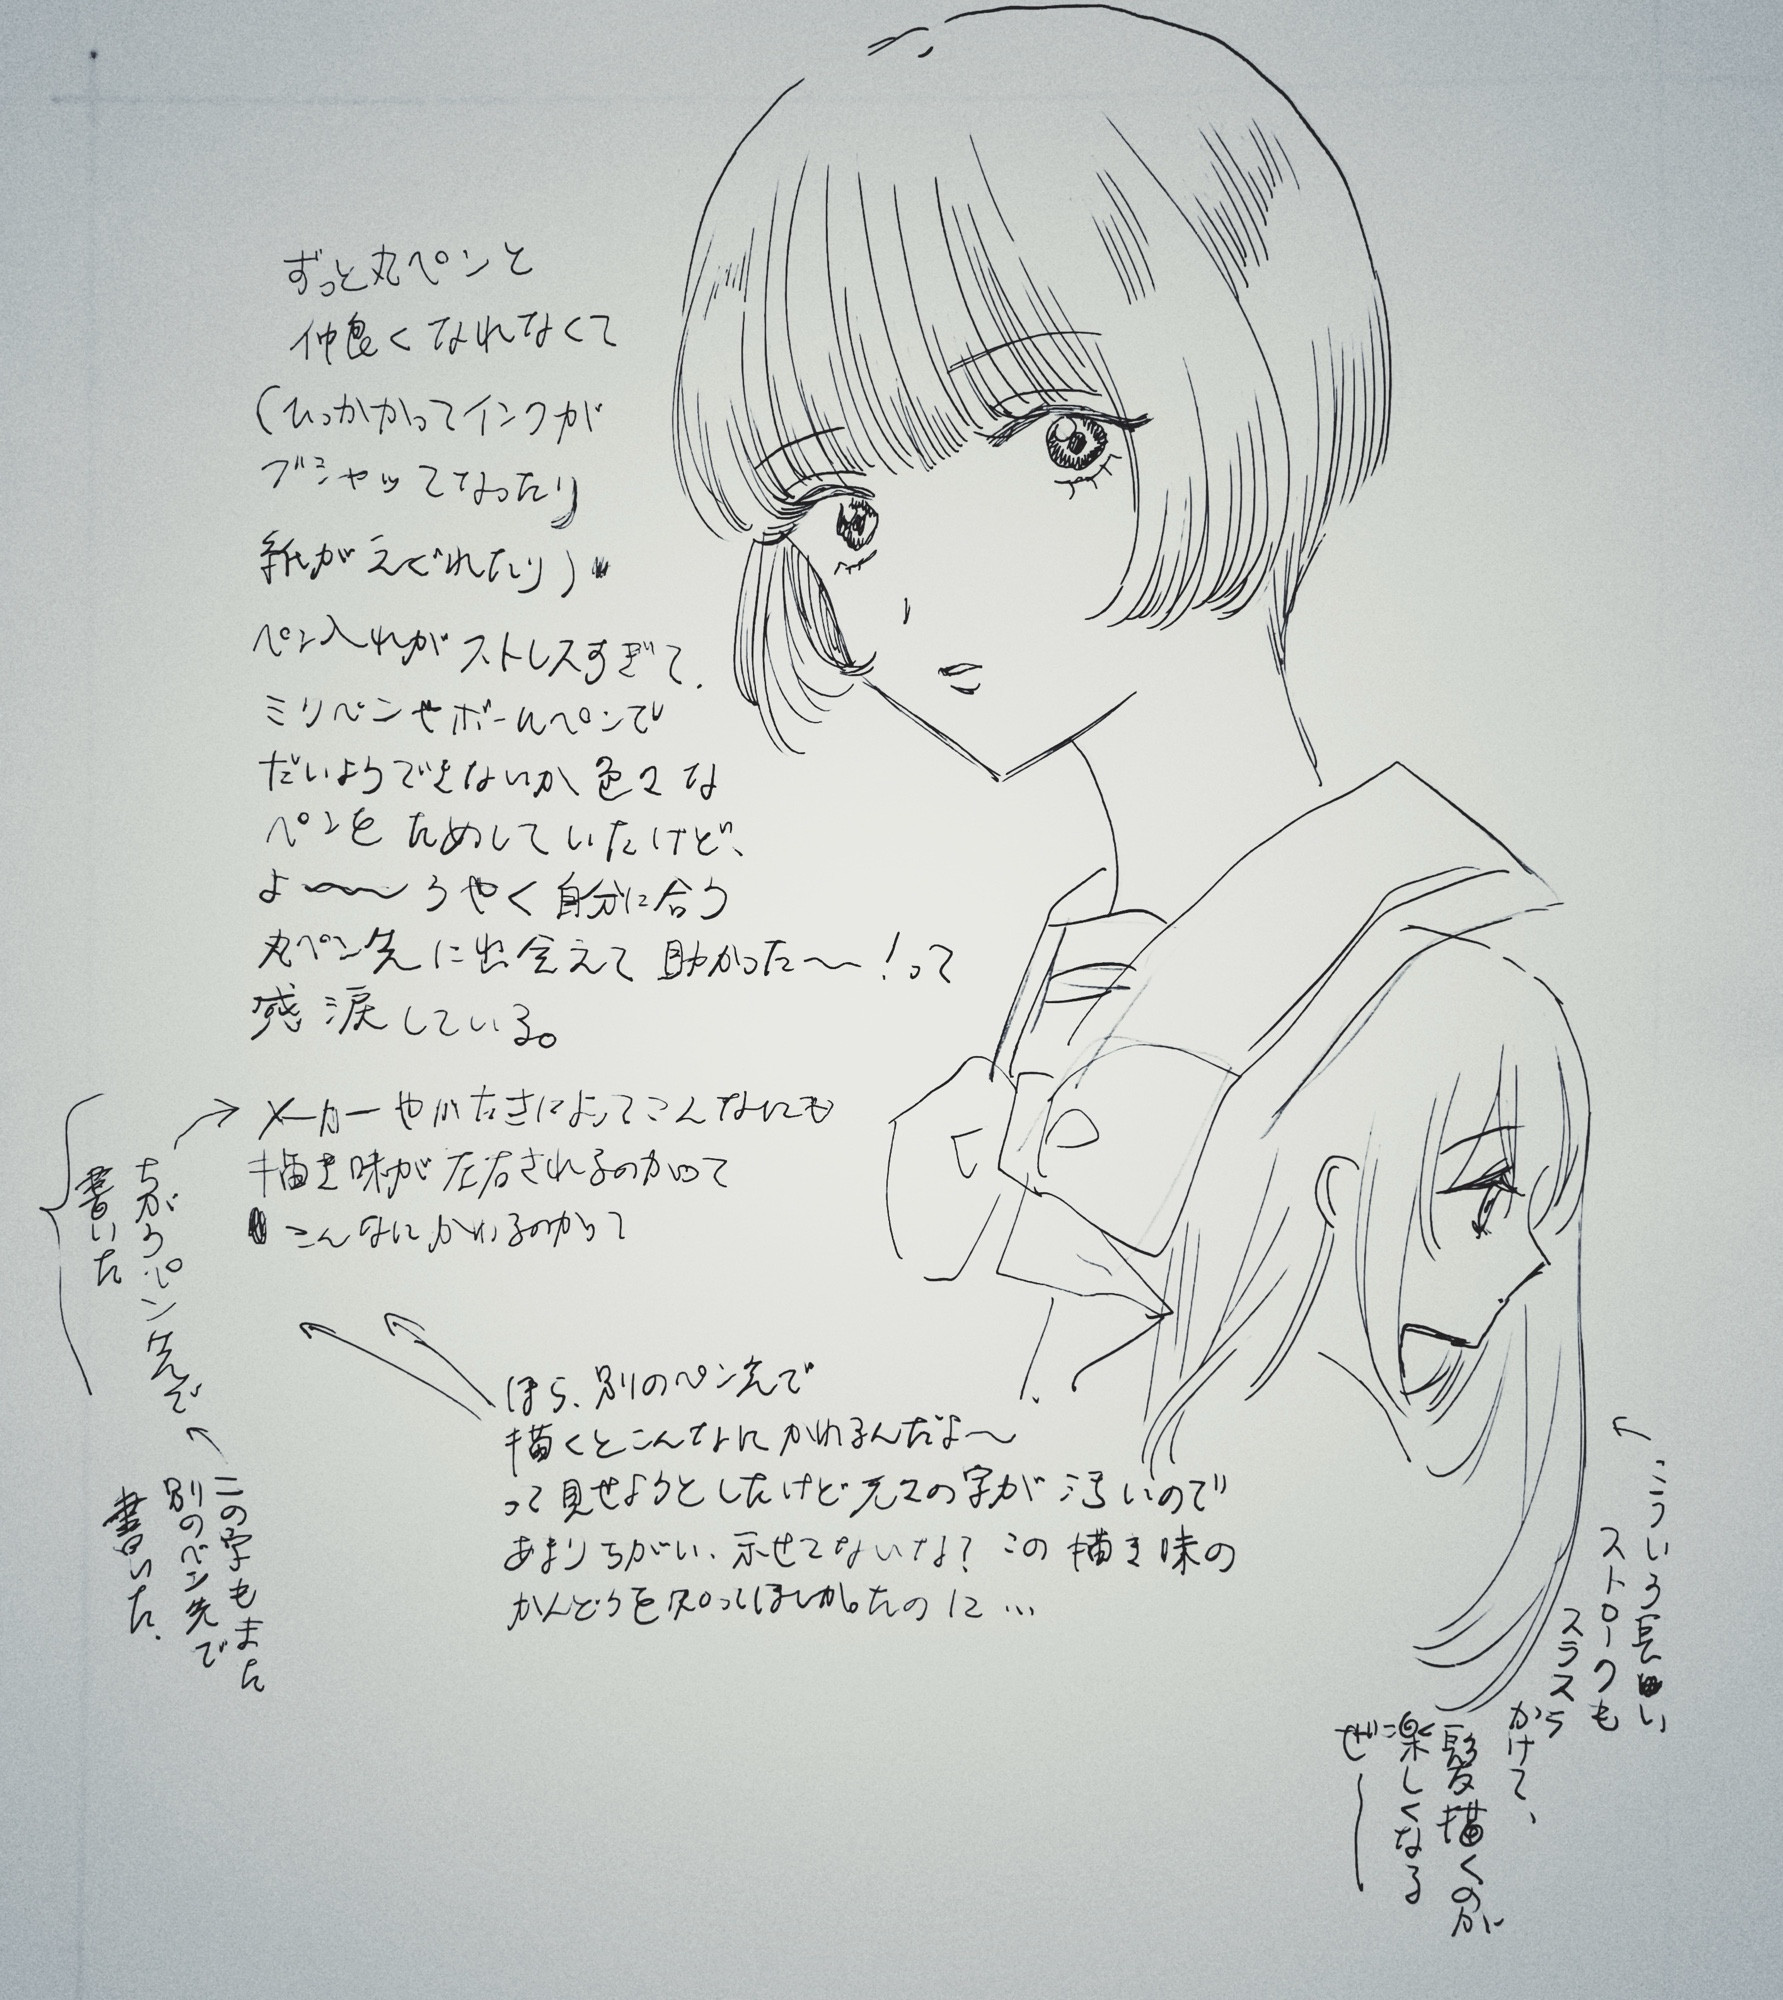 ずっと丸ペンと
仲良くなれなくて
(ひっかかってインクが
ブシャッてなったり
紙がえぐれたり)
ペン入れがストレスすぎて、
ミリペンやボールペンで
だいようできないか色々な
ペンをためしていたけど、
よ〜〜うやく自分に合う
丸ペン先に出会えて助かった〜!って
感涙している。
メーカーやかたさによってこんなにも
描き味が左右されるのかって
こんなにかわるのかって
ちがうペン先で
書いた
この字もまた
別のペン先で
書いた.
ほら、別のペン先で
描くとこんなにかわるんだよ〜
って見せようとしたけど元々の字が汚いので
あまりちがい、示せてないな?この描き味の
かんどうを知ってほしかったのに…
こういう長い
ストロークも
スラスラ
かけて、
髪描くのが
楽しくなる
ぜー